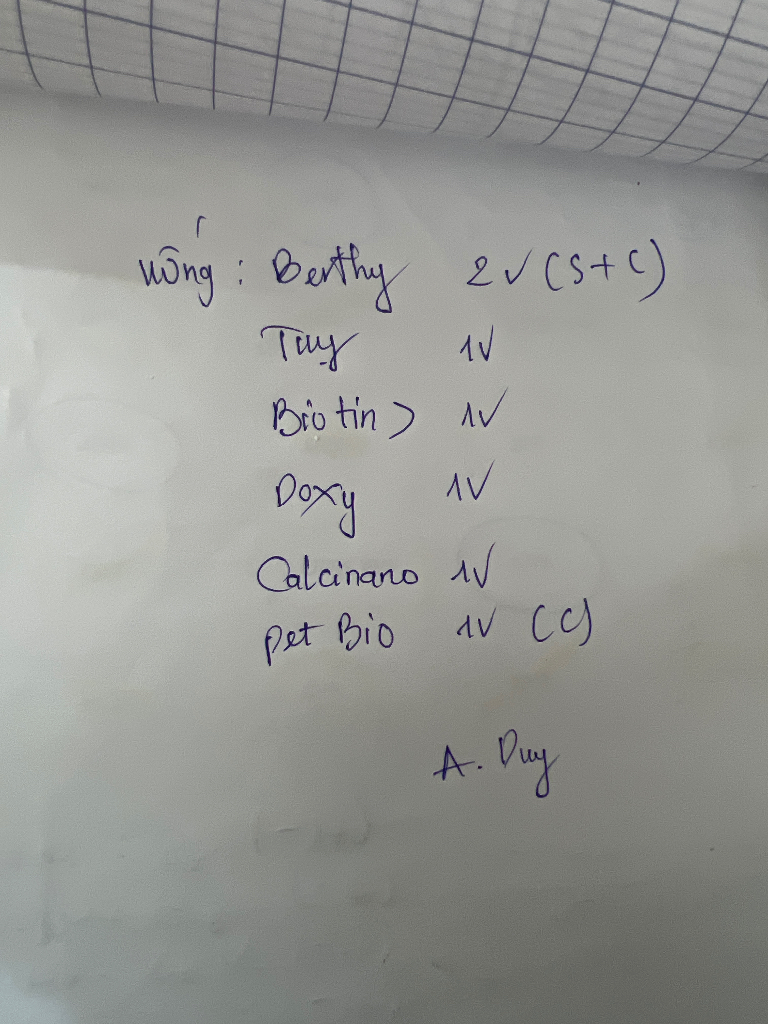 uống : Berthy 2v (S+C)
Tuỵ 1V
Biotin > 1V
Doxy 1V
Calcinano 1V
pet Bio 1V (C)
A. Duy